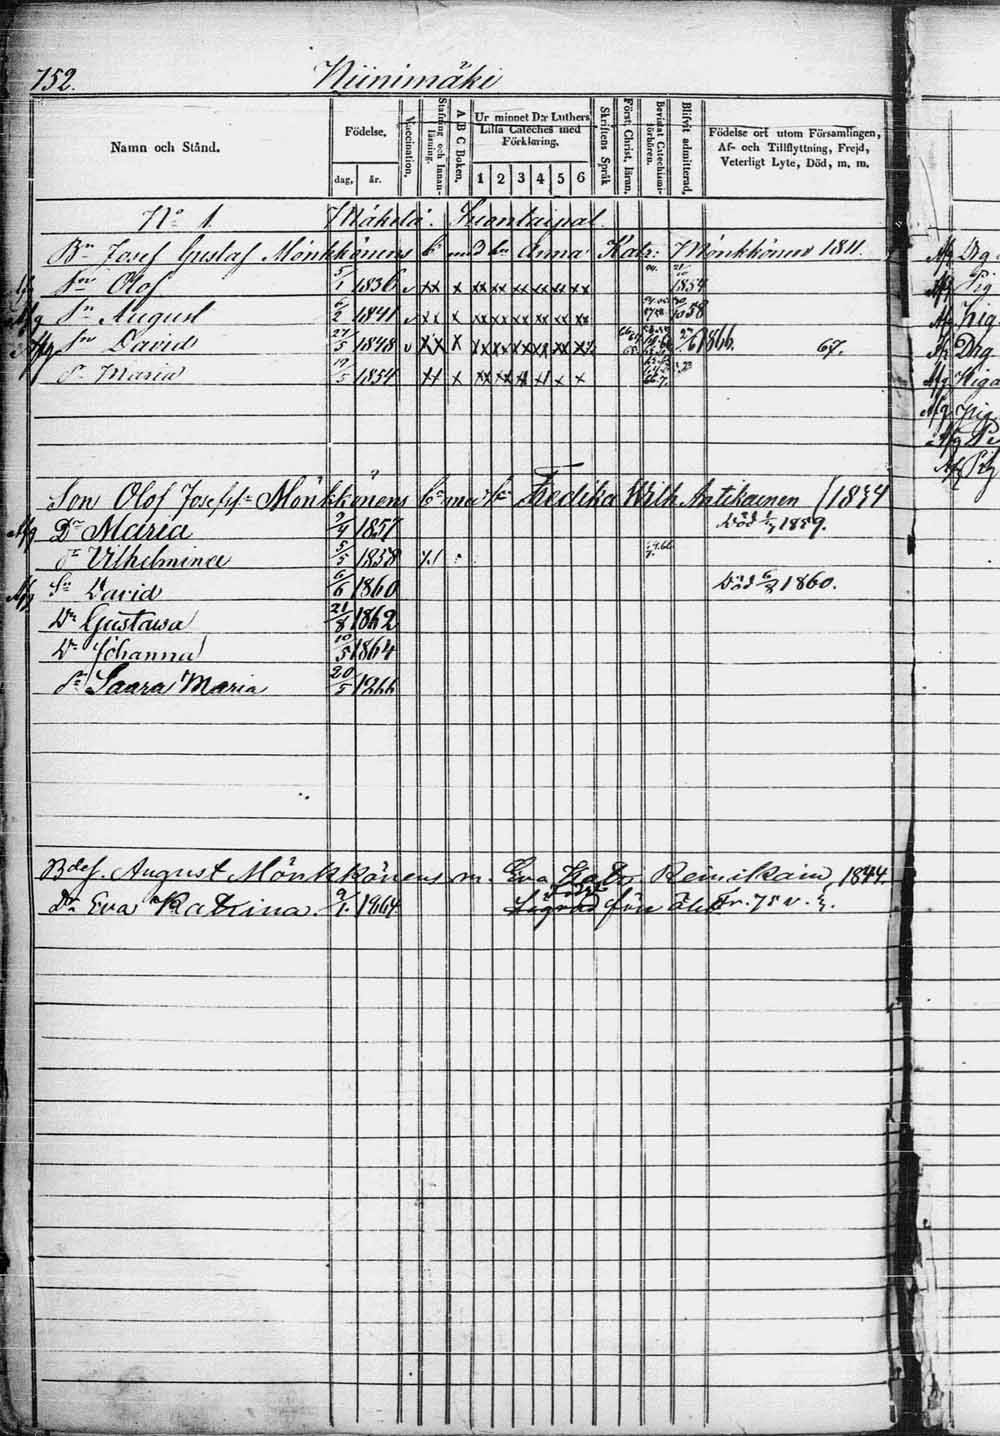 752. Niinimäki
Namn och Stånd.
Födelse,
dag, år.
Vaccination,
Stafning och Innanläsning.
A B C Boken,
Ur minnet D:r Luthers
Lilla Cateches med
Förklaring.
1 2 3 4 5 6
Skriftens Språk
Först. Christ. läran.
Bevistat Catechismiförhören.
Blifvit admitterad,
Födelse ort utom Församlingen,
Af- och Tillflyttning, Frejd,
Veterligt Lyte, Död, m. m.
No 1 Mäkelä. Suontaipal.
Bn Josef Gustaf Mönkkönens b med Anna Katr: Mönkkönen 1811.
Sn Olof 5/1 1836 v xx x xx xx xx xx xx xx 1854
Afg Sn August 6/2 1841 v xx x xx xx xx xx xx xx 58
Afg Sn David 27/5 1848 v xx x xx xx xx xx xx 1866. 67.
Dr Maria 19/5 1854 xx x xx xx xx x x x
Son Olof Josefss. Mönkkönens Fredika Wilh. Antikainen 1834
Afg Dr Maria 2/4 1857 Död 1859.
Dr Vilhelmina 5/5 1858
Afg Sn David 6/6 1860 Död 6/8 1860.
Dr Gustawa 21/8 1862
Dr Johanna 10/5 1864
Dr Saara Maria 20/5 1866
Bdef. August Mönkkönens m. Eva Katr. Reinikain 1844.
Dr Eva Katrina. 9/1. 1864 född
före äkt. Fr. 75 v.
Afg Drg
Afg Pig
Afg Pig
Afg Drg
Afg Piga
Afg Pig
Afg
Afg